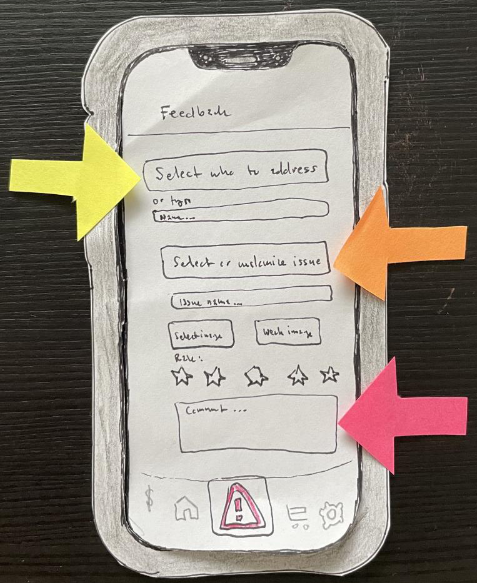 Feedback
Select who to address
or type
Name...
Select or issue
Issue name...
Select image image
Rate:
Comment...
$
!